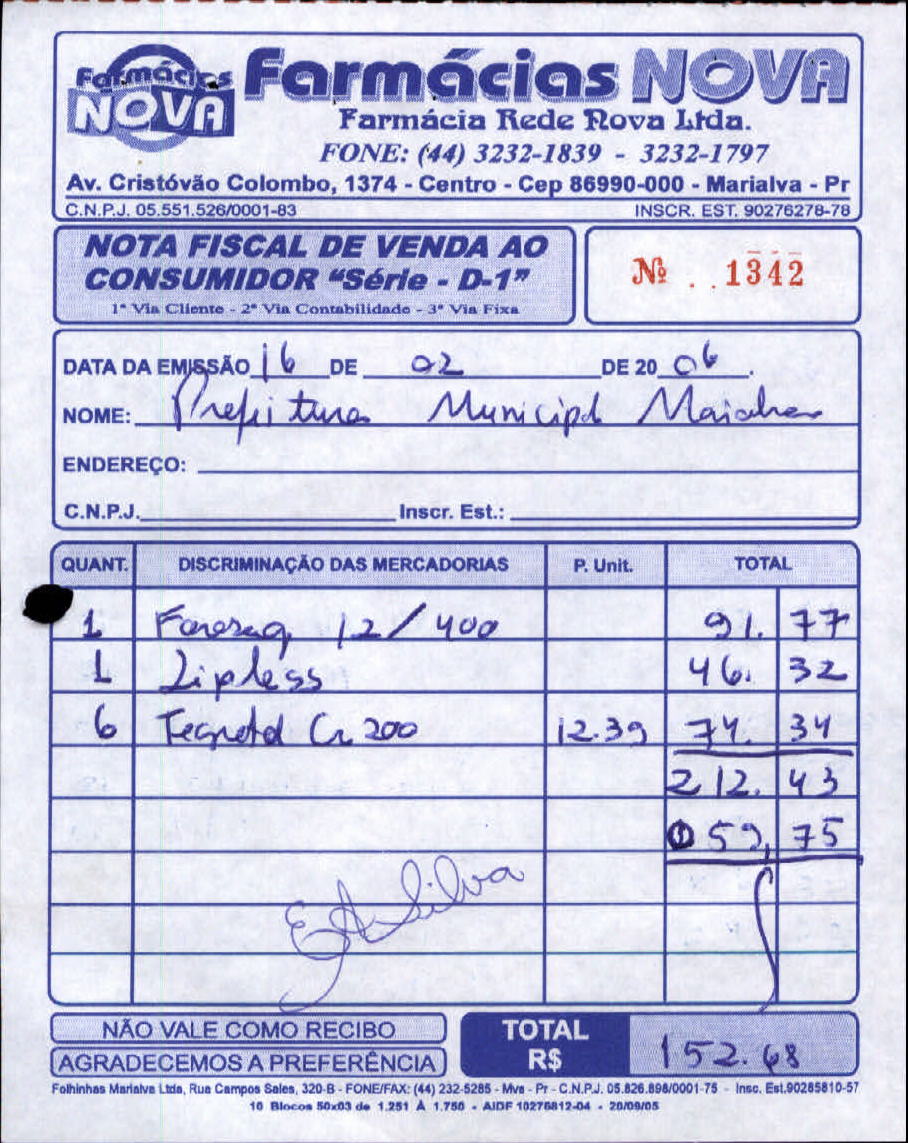 Farmácias NOVA
Farmácias NOVA
Farmácia Rede Nova Ltda.
FONE: (44) 3232-1839 - 3232-1797
Av. Cristóvão Colombo, 1374 - Centro - Cep 86990-000 - Marialva - Pr
C.N.P.J. 05.551.526/0001-83 INSCR. EST. 90276278-78
NOTA FISCAL DE VENDA AO
CONSUMIDOR "Série - D-1"
1ª Via Cliente - 2ª Via Contabilidade - 3ª Via Fixa
Nº 1342
DATA DA EMISSÃO 16 DE 02 DE 20 06.
NOME: Prefeitura Municipal
ENDEREÇO:
C.N.P.J. Inscr. Est.:
QUANT. DISCRIMINAÇÃO DAS MERCADORIAS P. Unit. TOTAL
1 Foraseq 12/400 91. 77
1 Lipless 46. 32
6 Tegretol Cr 200 12.39 74. 34
212. 43
59, 75
Silva
NÃO VALE COMO RECIBO
AGRADECEMOS A PREFERÊNCIA
TOTAL
R$ 152.68
Folhinhas Marialva Ltda, Rua Campos Sales, 320-B - FONE/FAX: (44) 232-5285 - Mva - Pr - C.N.P.J. 05.826.898/0001-75 - Insc. Est.90285810-57
10 Blocos 50x03 de 1.251 À 1.750 - AIDF 10276812-04 - 20/09/05